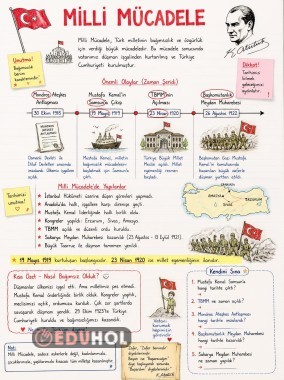 MİLLİ MÜCADELE
Milli Mücadele, Türk milletinin bağımsızlık ve özgürlük
için verdiği büyük mücadeledir. Bu mücadele sonucunda
vatanımız düşman işgalinden kurtarılmış ve Türkiye
Cumhuriyeti kurulmuştur.
Unutma!
Bağımsızlık
benim
karakterimdir.
K. Atatürk
Dikkat!
Tarihimizi
bilmek
geleceğimizi
aydınlatır.
Önemli Olaylar (Zaman Şeridi)
Mondros Ateşkes
Antlaşması
30 Ekim 1918
Mustafa Kemal'in
Samsun'a Çıkışı
19 Mayıs 1919
TBMM'nin
Açılması
23 Nisan 1920
Başkomutanlık
Meydan Muharebesi
26 Ağustos 1922
Osmanlı Devleti ile
İtilaf Devletleri arasında
imzalandı. Ülkemiz işgallere
açıldı.
Mustafa Kemal, milletin
bağımsızlık mücadelesini
başlatmak için
Samsun'a çıktı.
Türkiye Büyük Millet
Meclisi açıldı. Millet
egemenliği resmen
Başkomutan Gazi Mustafa
Kemal'in
Milli Mücadele'de Yapılanlar
Tarihimizi
unutma!
İstanbul Hükümeti üzerine düşen görevleri yapmadı.
Anadolu'da halk, işgallere karşı direnişe geçti.
Mustafa Kemal liderliğinde halk birlik oldu.
Kongreler yapıldı: Erzurum, Sivas, Amasya.
TBMM açıldı ve düzenli ordu kuruldu.
Sakarya Meydan Muharebesi kazanıldı (23 Ağustos - 13 Eylül 1921).
Büyük Taarruz ile düşman tamamen yenildi.
19 Mayıs 1919 kurtuluşun başlangıcıdır. 23 Nisan 1920 ise millet egemenliğinin
Kısa Özet - Nasıl Bağımsız Olduk?
Düşmanlar ülkemizi işgal etti. Ama milletimiz pes etmedi.
Mustafa Kemal önderliğinde birlik olduk. Kongreler yaptık,
meclisimizi açtık, ordumuzu kurduk. Çok zor şartlarda
savaşarak düşmanı yendik. 29 Ekim 1923'te Türkiye
Cumhuriyeti kuruldu ve bağımsızlığımızı kazandık.
Kendini Sına
1. Mustafa Kemal Samsun'a
hangi tarihte çıktı?
2. TBMM ne zaman açıldı?
3. Mondros Ateşkes Antlaşması
hangi tarihte imzalandı?
4. Başkomutanlık Meydan Muharebesi
hangi tarihte kazanıldı?
5. Sakarya Meydan Muharebesi
ne zaman yapıldı?
EDUHOL
Not:
Milli Mücadele, sadece askerlerle değil, kadınlarımızla
çocuklarımızla, yaşlılarımızla kısacası tüm milletçe kazanılmıştır!
K. Atatürk